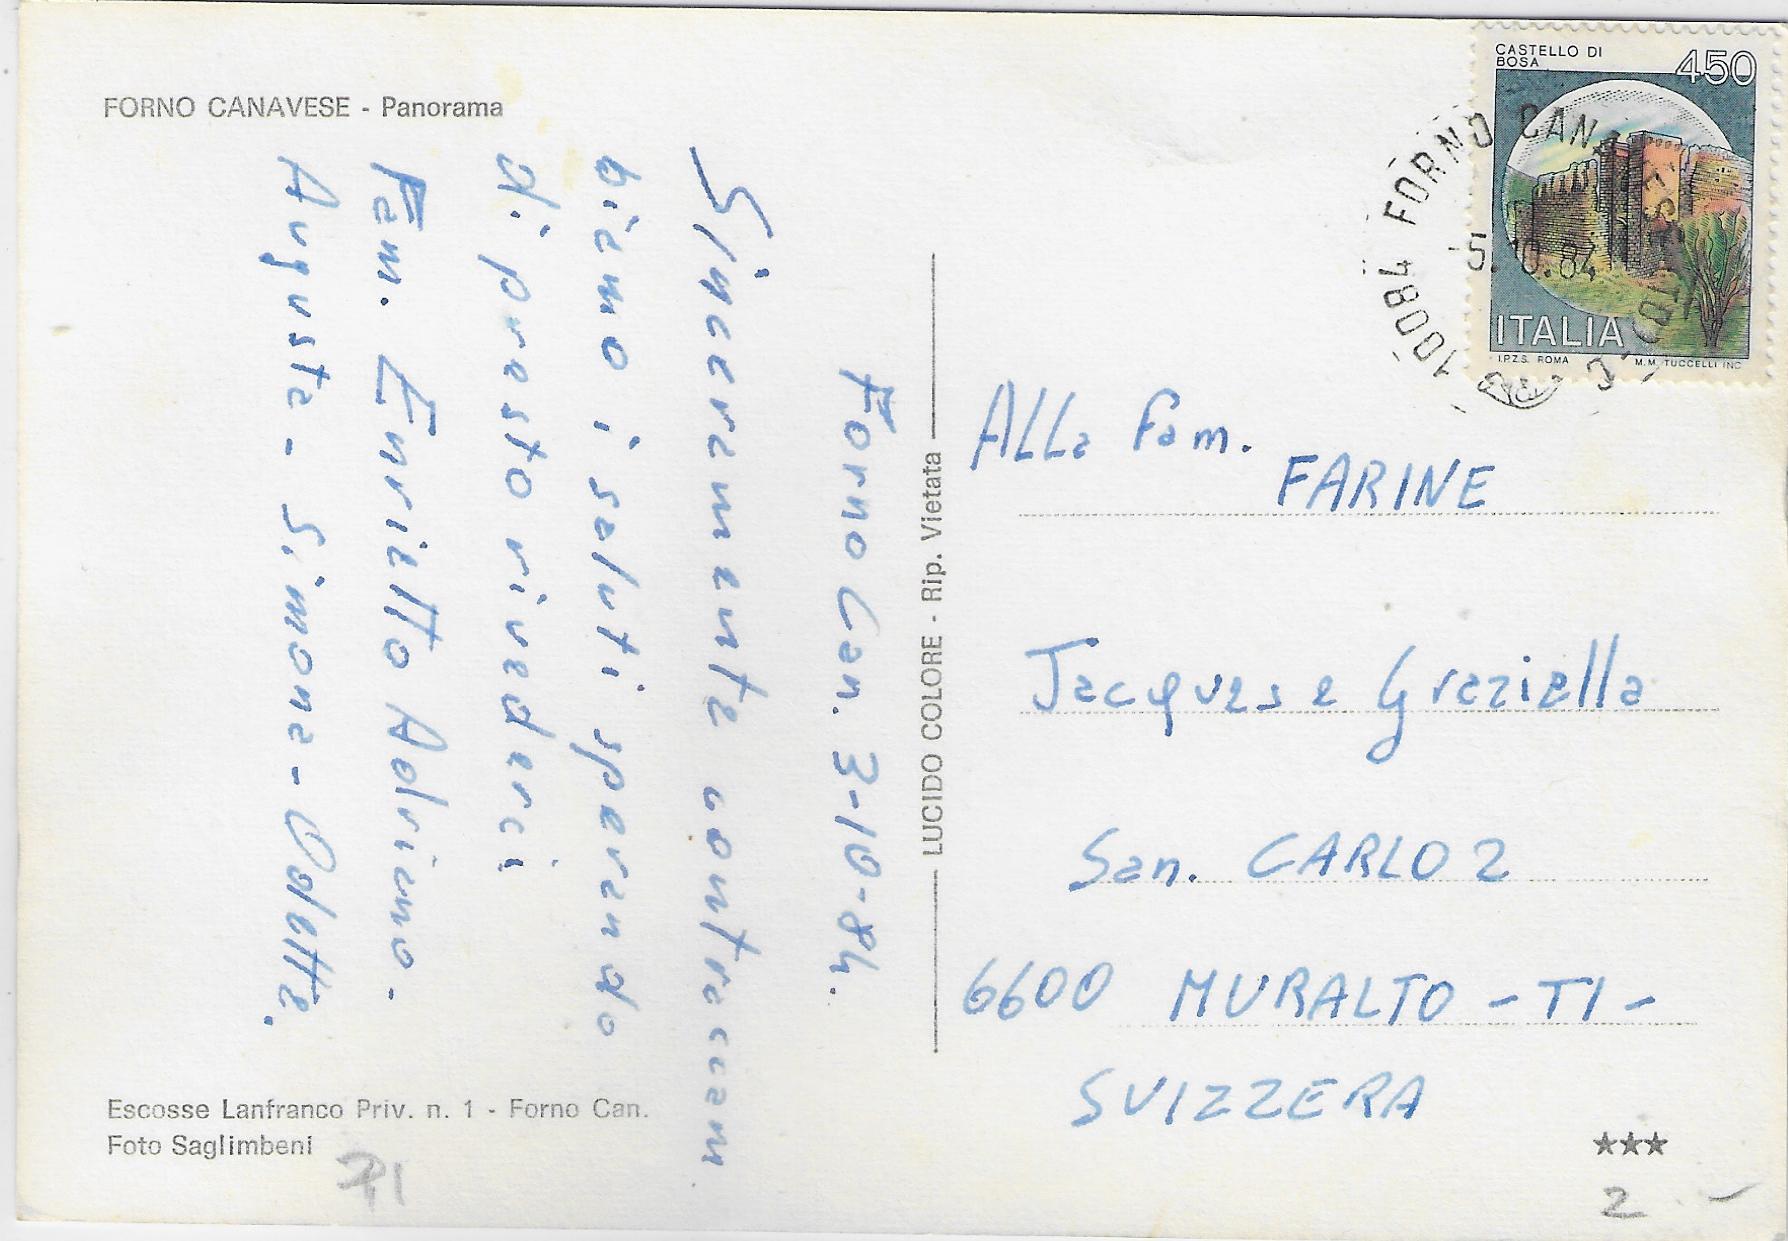 FORNO CANAVESE - Panorama
Forno Can. 3-10-84.
Sinceramente contraccam
biamo i saluti sperando
di presto rivederci
Fam. Enrietto Adriano -
Augusta - Simona - Odette.
Escosse Lanfranco Priv. n. 1 - Forno Can.
Foto Saglimbeni
LUCIDO COLORE - Rip. Vietata
CASTELLO DI
BOSA
450
ITALIA
I.P.Z.S. ROMA
M.M. TUCCELLI INC.
10084 FORNO CANAVESE
5.10.84
ALLa Fam.
FARINE
Jacques e Graziella
San. CARLO 2
6600 MURALTO - TI -
SVIZZERA
★★★
2 . -